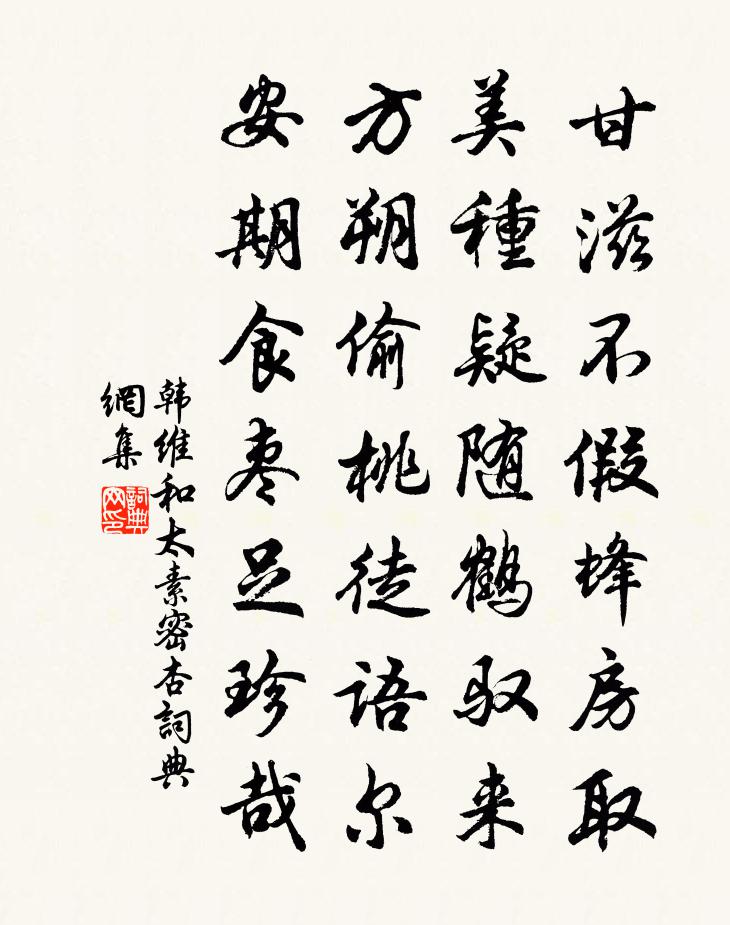 甘滋不假蜂房取
美種疑随鹤驭来
方朔偷桃徒语尔
安期食枣足珍哉
韩维和太素密杏詞典
網集
詞典網印